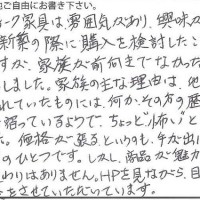 ご自由にお書き下さい。
ーク家具は、雰囲気があり、興味が
新築の際に購入を検討したこ
すが、家族が前向きでなかった
しました。家族の主な理由は、他
れていたものには、何か、その方の歴
宿っているようで、ちょっと"怖い"と
た。価格が張るというのも、手が出に
のひとつです。しかし、商品が魅力
わりはありません。HPを見ながら、目
をさせていただいています。